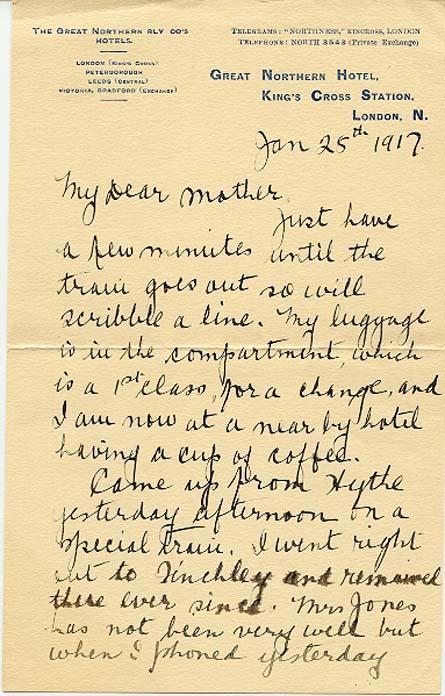 THE GREAT NORTHERN RLY CO'S
HOTELS.
LONDON (KING'S CROSS)
PETERBOROUGH
LEEDS (CENTRAL)
VICTORIA, BRADFORD (EXCHANGE)
TELEGRAMS: "NORTHNESS," KINCROSS, LONDON
TELEPHONE: NORTH 3543 (Private Exchange)
GREAT NORTHERN HOTEL,
KING'S CROSS STATION,
LONDON, N.
Jan 25th 1917.
My Dear Mother,
Just have
a few minutes until the
train goes out so will
scribble a line. My luggage
is in the compartment, which
is a 1st class, for a change, and
I am now at a near by hotel
having a cup of coffee.
Came up from Hythe
yesterday afternoon on a
special train. I went right
out to Finchley and remained
there ever since. Mrs Jones
has not been very well but
when I phoned yesterday